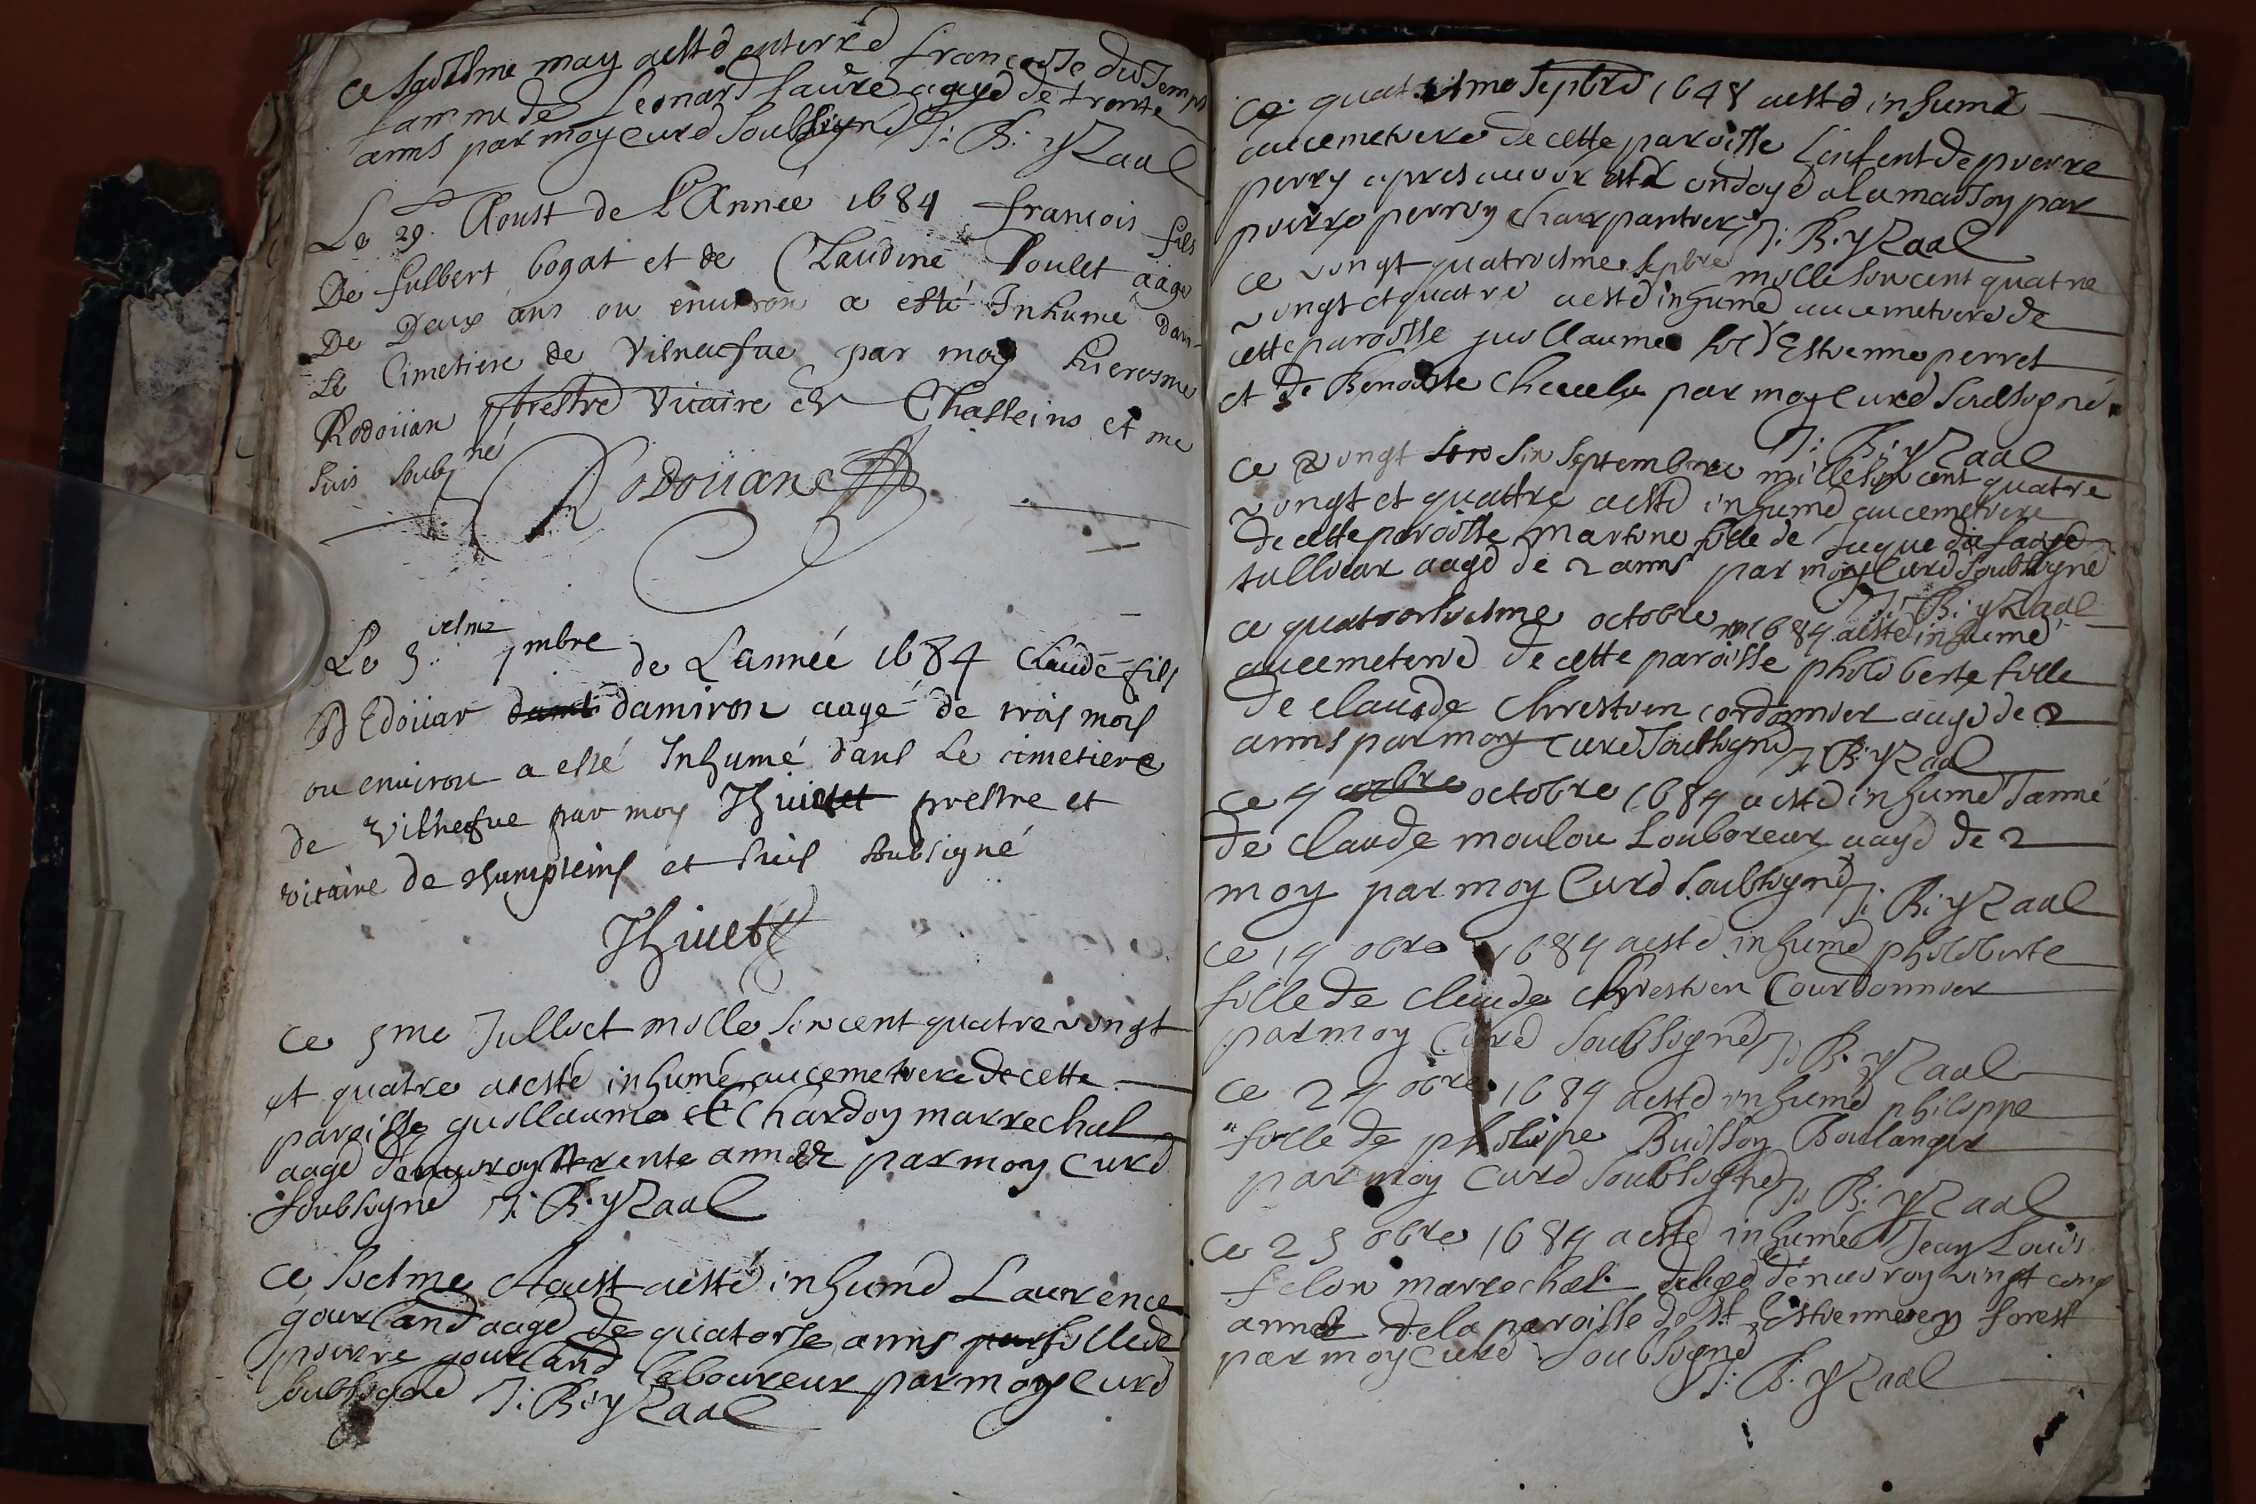 may a esté enterré francoise du Temps
famme de Leonard faure aagé de trante
anns par moy curé soubsigné J: B: yZaal
Le 29. Aoust de L'Année 1684 francois fils
De fulbert bogat et de Claudine Poulet aagé
De Deux ans ou environ a esté Inhumé dans
Le Cimetiere de Vilnefue par moy hierosme
Rodoüan prestre Vicaire de Chasteins et me
suis soubné
Rodoüane
Le 5.iesme 7mbre de L'année 1684 Claude fils
D'Edoüar damiron aagé de trois mois
ou environ a esté Inhumé dans Le cimetiere
de Vilnefue par moy Thiuet prestre et
vicaire de champteins et suis soubsigné
Thiuet
ce 5me Julliet mille sixcent quatre vingt
et quatre a esté inhumé au cemetiere de cette
paroisse guillaume Chardon marrechal
aagé d'enuiron trente année par moy curé
soubsigné J: B: yZaal
ce Aoust a esté inhumé Laurence
gourland aagé de quatorse anns fille de
pierre gourland laboureur par moy curé
soubsigné J: B: yZaal
ce septbre 1648 a esté inhumé
au cemetiere de cette paroisse L'enfent de pierre
perry apres auoir esté ondoyé a la maison par
pierre perroy charpantier J: B: yZaal
ce vingt quatriesme sepbre mille sixcent quatre
vingt et quatre a esté inhumé au cemetiere de
cette paroisse guillaume Estienne perret
et de Benoiste par moy curé soubsigné.
J: B: yZaal
ce vingt six septembre mille sixcent quatre
vingt et quattre a esté inhumé au cemetiere
de cette paroisse martine fille de Jaque
tallieur aagé de 2 anns par moy curé soubsigné
J: B: yZaal
ce quatorsiesme octobre 1684 a esté inhumé
au cemeteire de cette paroisse philiberte fille
de claude chrestien cordonnier aagé de 2
anns par moy curé soubsigné J: B: yZaal
ce 4 octobre 1684 a esté inhumé Janne
de claude moulou Laboreur aagé de 2
moy par moy Curé soubsigné J: B: yZaal
ce 14 obre 1684 a esté inhumé philiberte
fille de claude chrestien Courdonnier
par moy curé soubsigné J: B: yZaal
ce 24 obre 1684 a esté inhumé philippe
fille de philipe Buisson Boulanger
par moy curé soubsigné J: B: yZaal
ce 25 obre 1684 a esté inhumé Jean Louis
felon marrechal d'enuiron vingt cinq
anns de la paroisse de St Estienne en forest
par moy curé soubsigné
J: B: yZaal